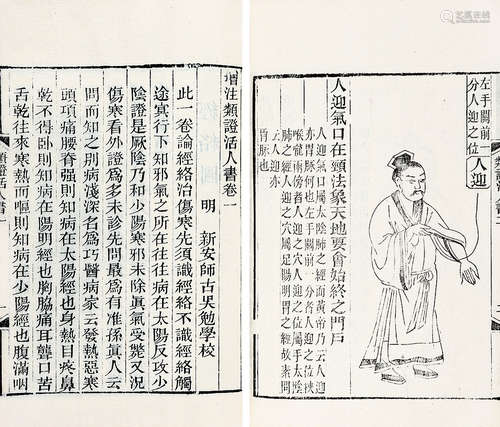 左手關前一
分人迎之位
人迎
人迎氣口在頸法象天地要會始終之門戶
人迎氣口屬太陰肺之經而黃帝乃云人迎
亦胃脈何也左手關前一分者人迎之位挾
喉嚨兩旁者人迎之穴人迎之位屬手太陰
肺之經人迎之穴屬足陽明胃之經故素問
云人迎亦
胃脈也
增注類證活人書卷一
明 新安師古吳勉學校
此一卷論經絡治傷寒先須識經絡不識經絡觸
途冥行下知邪氣之所在往往病在太陽反攻少
陰證是厥陰乃和少陽寒邪未除眞氣受斃又況
傷寒看外證爲多未診先問最爲有准孫眞人云
問而知之別病淺深名爲巧醫病家云發熱惡寒
頭項痛腰脊强則知病在太陽經也身熱目疼鼻
乾不得卧則知病在陽明經也胸脇痛耳聾口苦
舌乾往來寒熱而嘔則知病在少陽經也腹滿咽